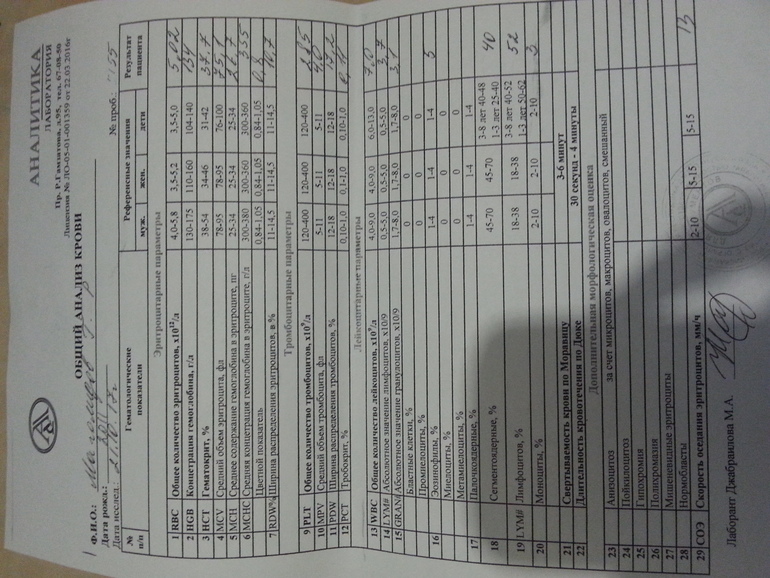 АНАЛИТИКА
ЛАБОРАТОРИЯ
Пр. Р.Гамзатова, д.95, тел. 67-08-50
Лицензия № ЛО-05-01-001359 от 22.03.2016г
ОБЩИЙ АНАЛИЗ КРОВИ
Ф.И.О.:
Дата рожд.:
Дата исслед.: 27.10.17г № проб.:
№ п/п Гематологические показатели Референсные значения Результат пациента
муж. жен. дети
Эритроцитарные параметры
1 RBC Общее количество эритроцитов, x10¹²/л 4,0-5,8 3,5-5,2 3,5-5,0 5,02
2 HGB Концентрация гемоглобина, г/л 130-175 110-160 104-140 134
3 HCT Гематокрит, % 38-54 34-46 31-42 37,7
4 MCV Средний объем эритроцита, фл 78-95 78-95 76-100 75,1
5 MCH Среднее содержание гемоглобина в эритроците, пг 25-34 25-34 25-34 26,7
6 MCHC Средняя концентрация гемоглобина в эритроците, г/л 300-380 300-360 300-360 355
Цветной показатель 0,84-1,05 0,84-1,05 0,84-1,05 0,8
7 RDW% Ширина распределения эритроцитов, в % 11-14,5 11-14,5 11-14,5
Тромбоцитарные параметры
9 PLT Общее количество тромбоцитов, x10⁹/л 120-400 120-400 120-400
10 MPV Средний объем тромбоцита, фл 5-11 5-11 5-11
11 PDW Ширина распределения тромбоцитов, % 12-18 12-18 12-18
12 PCT Тробокрит, % 0,10-1,0 0,1-1,0 0,10-1,0
Лейкоцитарные параметры
13 WBC Общее количество лейкоцитов, x10⁹/л 4,0-9,0 4,0-9,0 6,0-13,0 7,0
14 LYM# Абсолютное значение лимфоцитов, x10/9 0,5-5,0 0,5-5,0 0,5-5,0 3,7
15 GRAN# Абсолютное значение гранулоцитов, x10/9 1,7-8,0 1,7-8,0 1,7-8,0
Бластные клетки, % 0 0 0
Промиелоциты, % 0 0 0
16 Эозинофилы, % 1-4 1-4 1-4 5
Миелоциты, % 0 0 0
Метамиелоциты, % 0 0 0
17 Палочкоядерные, % 1-4 1-4 1-4
18 Сегментоядерные, % 45-70 45-70 3-8 лет 40-48 40
1-3 лет 25-40
19 LYM% Лимфоцитов, % 18-38 18-38 3-8 лет 40-52 52
1-3 лет 50-62
20 Моноциты, % 2-10 2-10 2-10 3
21 Свертываемость крови по Моравицу 3-6 минут
22 Длительность кровотечения по Дюке 30 секунд - 4 минуты
Дополнительная морфологическая оценка
23 Анизоцитоз за счет микроцитов, макроцитов, овалоцитов, смешанный
24 Пойкилоцитоз
25 Гипохромия
26 Полихромазия
27 Мишеневидные эритроциты
28 Нормобласты
29 СОЭ Скорость оседания эритроцитов, мм/ч 2-10 5-15 5-15 13
Лаборант Джабраилова М.А.